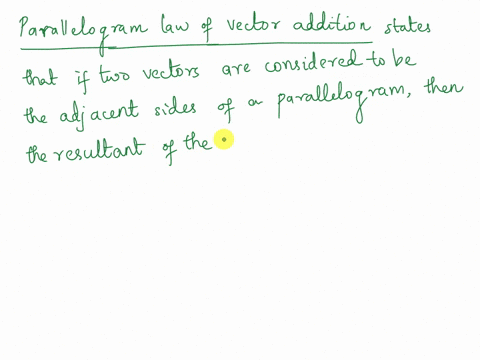 Parallelogram law of vector addition states
that if two vectors are considered to be
the adjacent sides of a parallelogram, then
the resultant of the